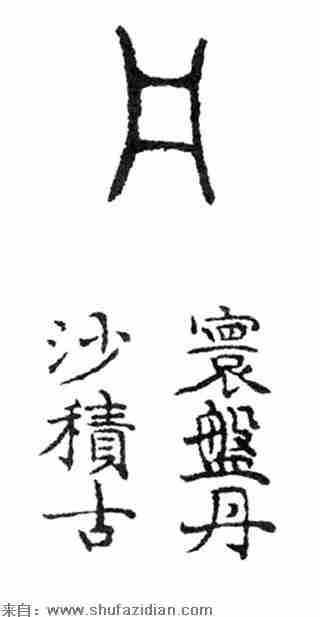 寰盤丹
沙積古
来自：www.shufazidian.com